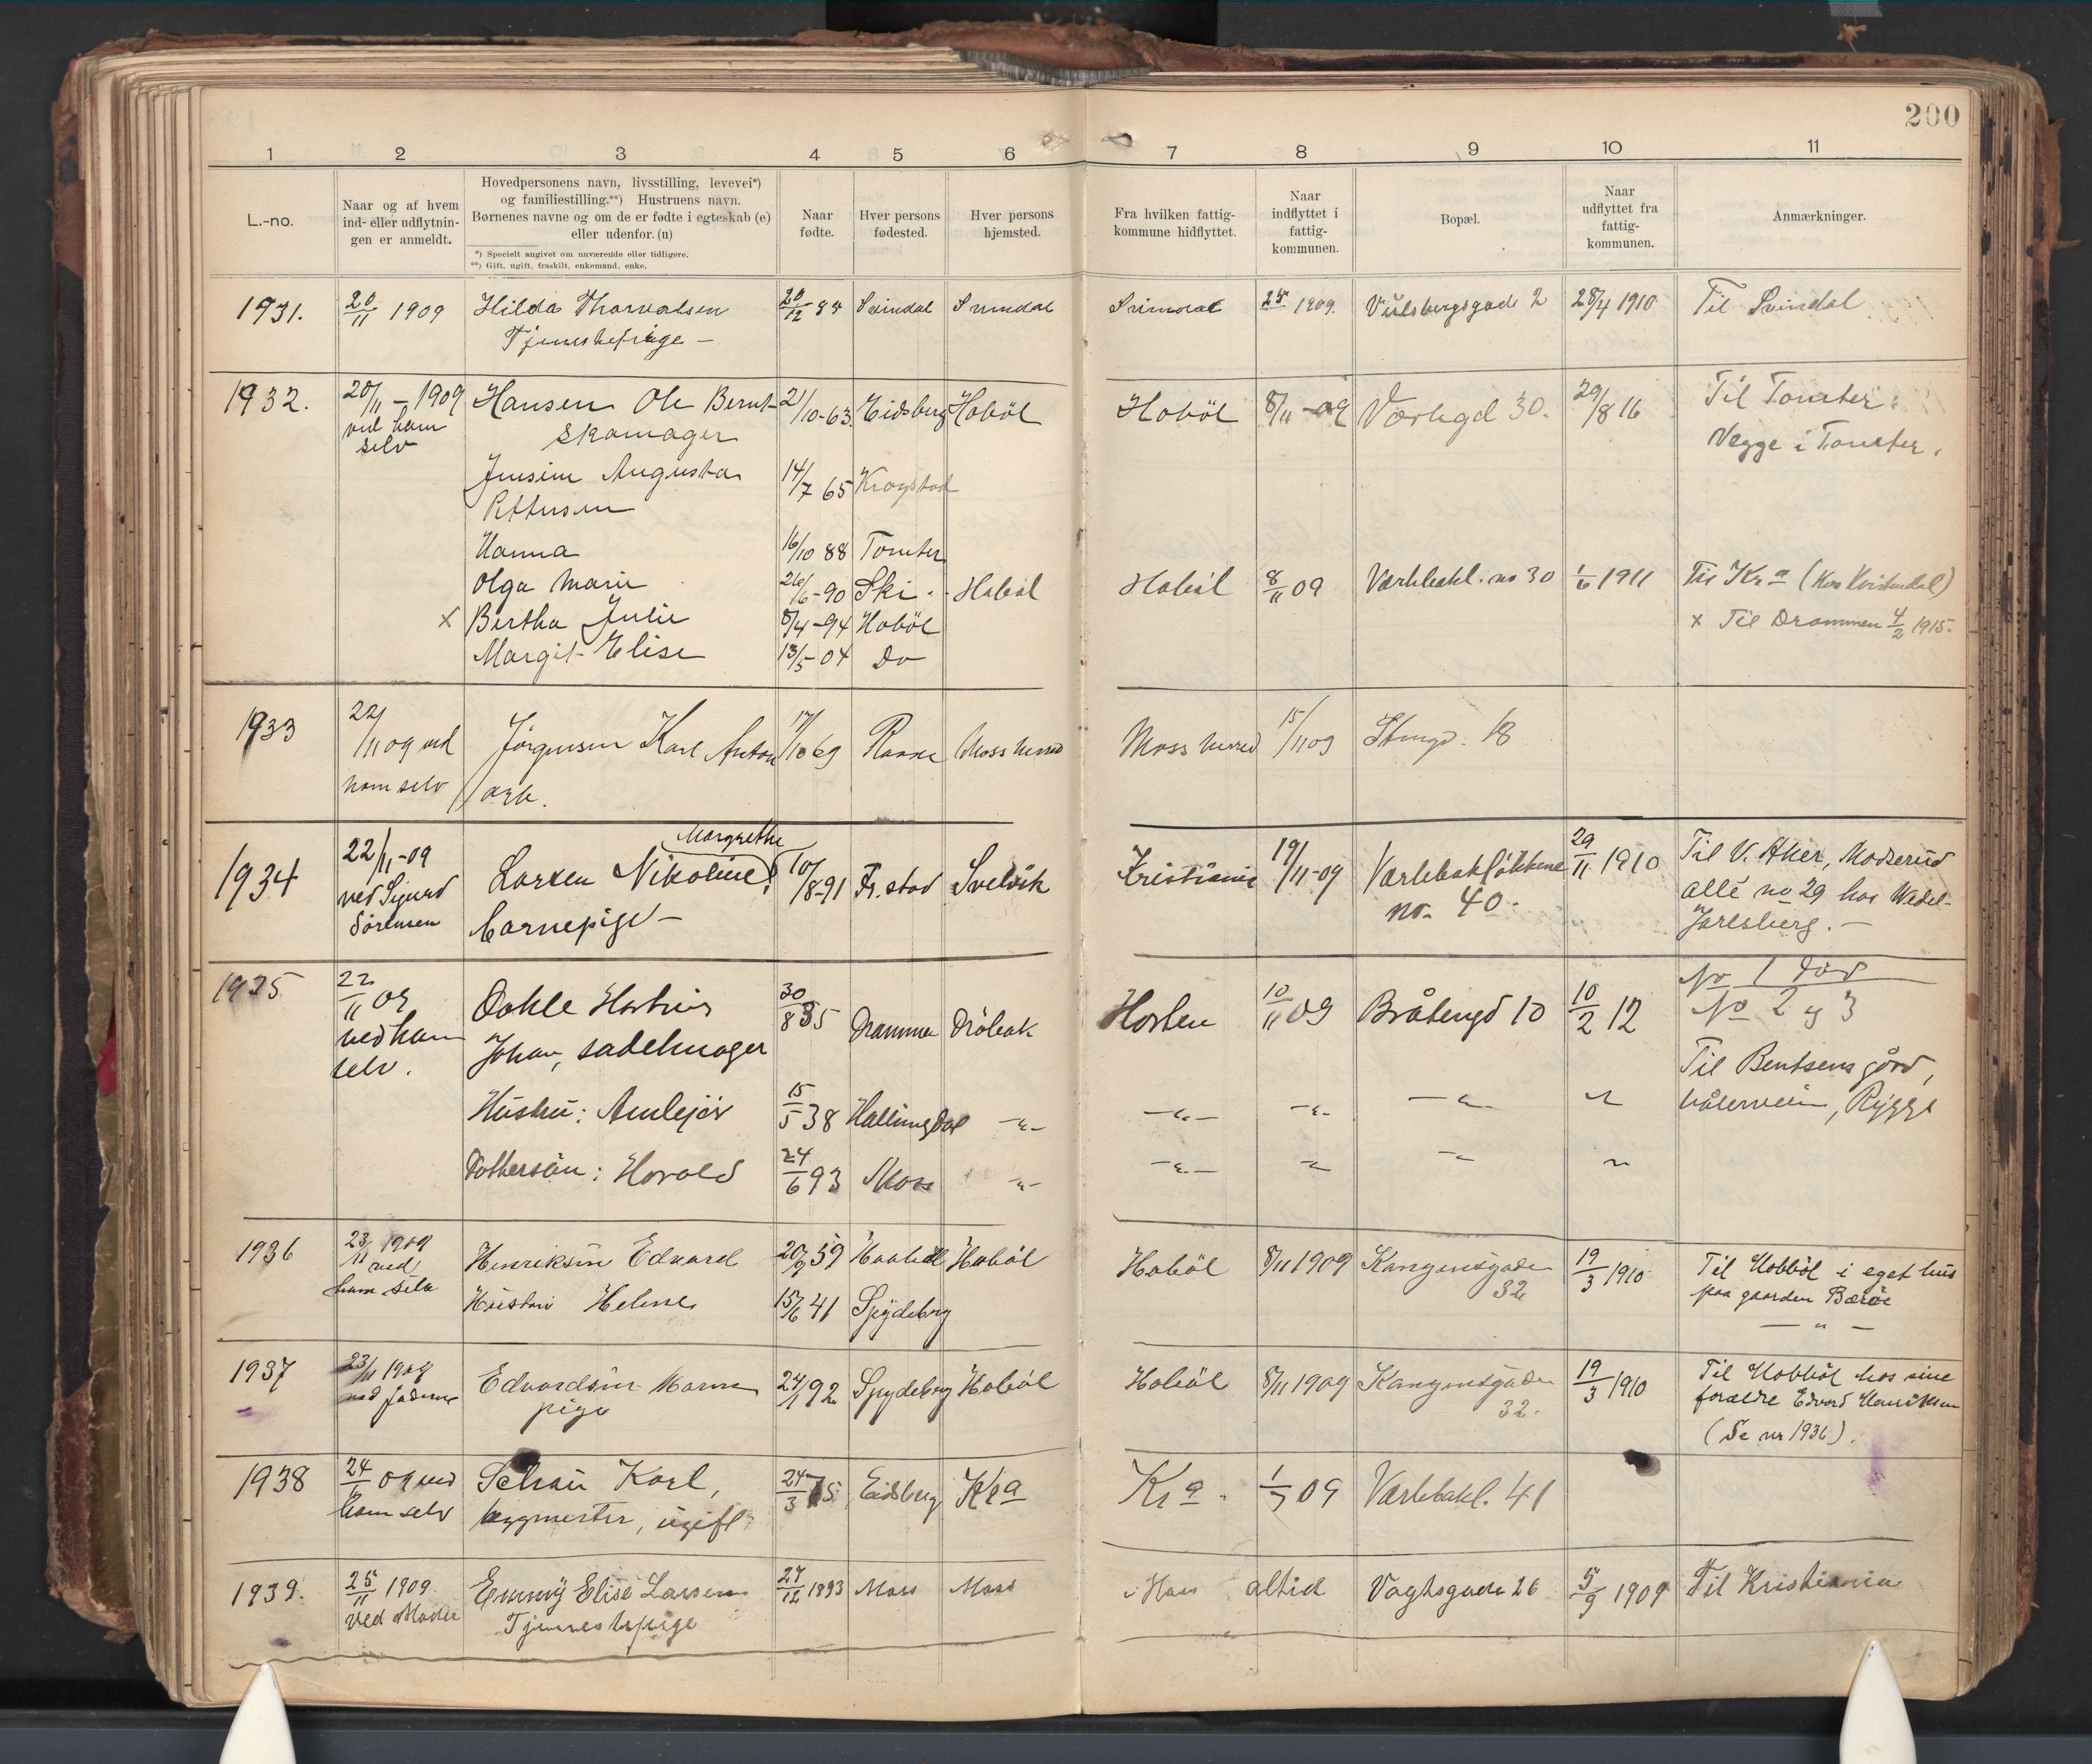 200
1 2 3 4 5 6 7 8 9 10 11
L.-no.
Naar og af hvem
ind- eller udflytnin-
gen er anmeldt.
Hovedpersonens navn, livsstilling, levevei*)
og familiestilling.**) Hustruens navn.
Børnenes navne og om de er fødte i egteskab (e)
eller udenfor. (u)
*) Specielt angivet om nuværende eller tidligere.
**) Gift, ugift, fraskilt, enkemand, enke.
Naar
fødte.
Hver persons
fødested.
Hver persons
hjemsted.
Fra hvilken fattig-
kommune hidflyttet.
Naar
indflyttet i
fattig-
kommunen.
Bopæl.
Naar
udflyttet fra
fattig-
kommunen.
Anmærkninger.
1931. 20/11 1909 Hilda Thorvalsen 20/12 Svindal Svindal Svindal 25 1909. Vulsbergsgade 2 28/4 1910 Til Svindal
Tjenestepige –
1932. 20/11 – 1909 Hansen Ole Bernt 2/10-63 Eidsberg Hoböl Hoböl 8/11 -09 30. 29/8 16 Til Tomter
ved ham
selv
Skomager
Vegge i Tomter.
Jensine Augusta 14/7 65 Kragstad
Pettersen
Hanna 16/10 88 Tomter
Olga Marie 26/6-90 Ski Haböl Haböl 8/11 09 Værlebakl. no 30 1/6 1911 Til Kra
x Bertha Julie 8/4-94 Hoböl x Til Drammen 4/2 1915.
Margit Elise 13/5-04 Do
1933 22/11 09 ved Jörgensen Karl Anton 17/10 69 Moss herred Moss herred 15/11 09 Stengd. 18
ham selv arb.
1934 22/11-09 Larsen Nikoline Margrethe 10/8-91 Fr.stad Svelvik Kristiania 19/11-09 Værlebakløkkene 29/11 1910 Til V. Aker, Madserud
ved Sigurd
Sörensen
barnepige –
no. 40.
allé no 29 hos Wedel-
Jarlsberg. –
1935 22/11 09 30/8 35 Drammen Dröbak Horten 10/11 09 Bråtengd 10 10/2 12 No 1 död
No 2 og 3
ved ham
selv.
Johan, sadelmager
Til Bentsens gård,
Hustru: 15/5 38 Hallingdal -"- -"- -"- -"- " Vålerveien, Rygge
Dattersön: Harald 24/6 93 Moss -"- -"- " -"- "
1936 23/11 1909 Henriksen Edvard 20/9 59 Hoböl Hoböl 8/11 1909 Kongensgaden 19/3 1910 Til Hobböl i eget hus
ved
ham selv
Hustru Helene 15/6 41 Spydeberg 32 paa gaarden
— " —
1937 23/11 1909 Edvardsen 24/1 92 Spydeberg Hoböl Hoböl 8/11 1909 Kongensgaden 19/3 1910 Til Hobböl hos sine
pige 32. forældre Edvard Henriksen
(Se nr 1936).
1938 24/11 09 ved Karl, 24/3 75 Eidsberg Kra Kra. 1/7 09 Værlebakl. 41
ham selv bygmester, ugift
1939. 25/11 1909 Emmy Elise Larsen 27/12 1893 Moss Moss Moss altid Vogtsgade 26 5/9 1909 Til Kristiania
ved Moder Tjenestepige